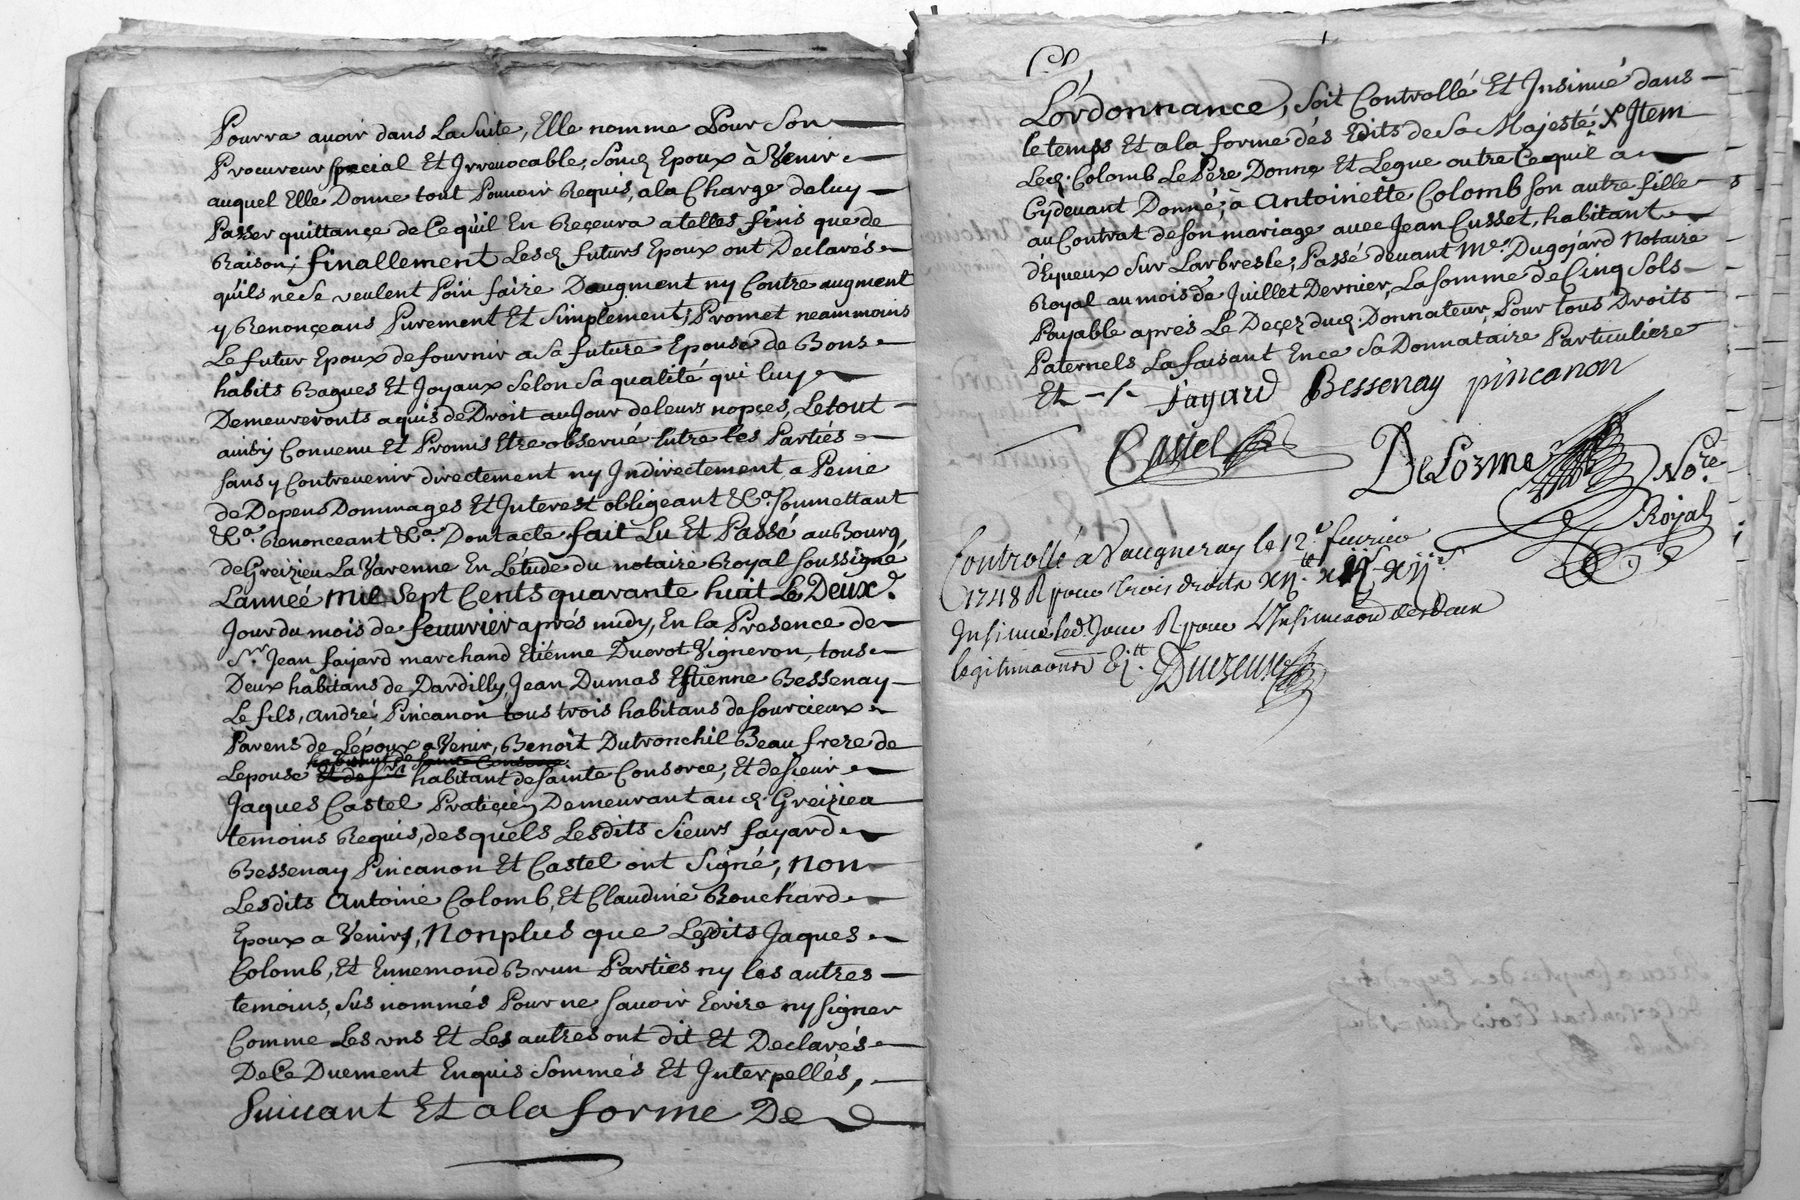 Pourra auoir dans La Suite, Elle nomme Pour Son
Procureur special Et Irreuocable, Son d. Epoux à Venir
auquel Elle Donne tout Pouuoir Requis, a la Charge de luy
Passer quittançe de Ce qu'il En Reçeura a telles fins que de
Raison; finallement Lesd. futurs Epoux ont Declarés
qu'ils ne se veulent Poin faire D'augment ny Contre augment
y Renonçeans Purement Et Simplement; Promet neammoins
Le futur Epoux de fournir a Sa future Epouse de Bons
habits Bagues Et Joyaux Selon Sa qualité qui luy
Demeureronts aquis de Droit au Jour de leurs nopçes, Le tout
ainsy Conuenu Et Promis Etre obserué Entre les Partiés
sans y Contreuenir directement ny Indirectement, a Peine
de Depens Dommages Et Interest obligeant &a. Soumettant
&a. Renonceant &a. Dont acte fait Lu Et Passé au Bourg
de Greizieu La Varenne En L'étude du notaire Royal soussigné
L'anneé mil Sept Cents quarante huit Le Deux.e
Jour du mois de feuurier aprés midy, En la Presence de
Sr. Jean fayard marchand Etiénne Ducrot Vigneron, tous
Deux habitans de Dardilly, Jean Dumas Estienne Bessenay
Le fils, André Pincanon tous trois habitans de Sourcieux
Parens de L'époux a Venir, Benoît Dutronchil Beau frere de
habitant de Sainte Consorce
Lepouse Et de Sr. habitant de Sainte Consorce, Et de Sieur
Jaques Castel Pratiçien Demeurant au d. Greizieu
temoins Requis, desquels Lesdits Sieurs fayard
Bessenay Pincanon Et Castel ont Signé, non
Lesdits Antoine Colomb, Et Claudine Bouchard
Epoux a Venirs, Non plus que Lesdits Jaques
Colomb, Et Ennemond Brun Parties ny les autres
temoins, Sus nommés Pour ne Sauoir Ecrire ny Signer
Comme Les vns Et Les autres ont dit Et Declarés
De Ce Duement Enquis Sommés Et Interpellés,
Suiuant Et a la forme De
L'ordonnance, Soit Controllé Et Insinué dans
le temps Et a la forme dés Edits de Sa Majesté, X Item
Led. Colomb Le Pere Donne Et Legue outre Ce quil a
Cydeuant Donné, à Antoinette Colomb Son autre fille
au Contrat de Son mariage auec Jean Cusset, habitant
d'Equeux Sur Larbresle, Passé deuant Me. Dugojard Notaire
Royal au mois de Juillet Dernier, La Somme de Cinq Sols
Payable aprés Le Deçez dud. Donnateur, Pour tous Droits
Paternels La faisant En ce Sa Donnataire Particuliere
Et -/- fayard Bessenay pincanon
Castel DeLorme Nore.
Royal
Controllé a Vaugneray le 12.e feurier
1748 R pour trois droits
Insinué led. Jour R pour